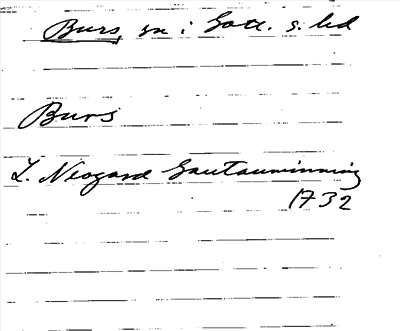 Burs, sn: Gotl. s. hd
Burs
L. Neogard Gautauminning
1732